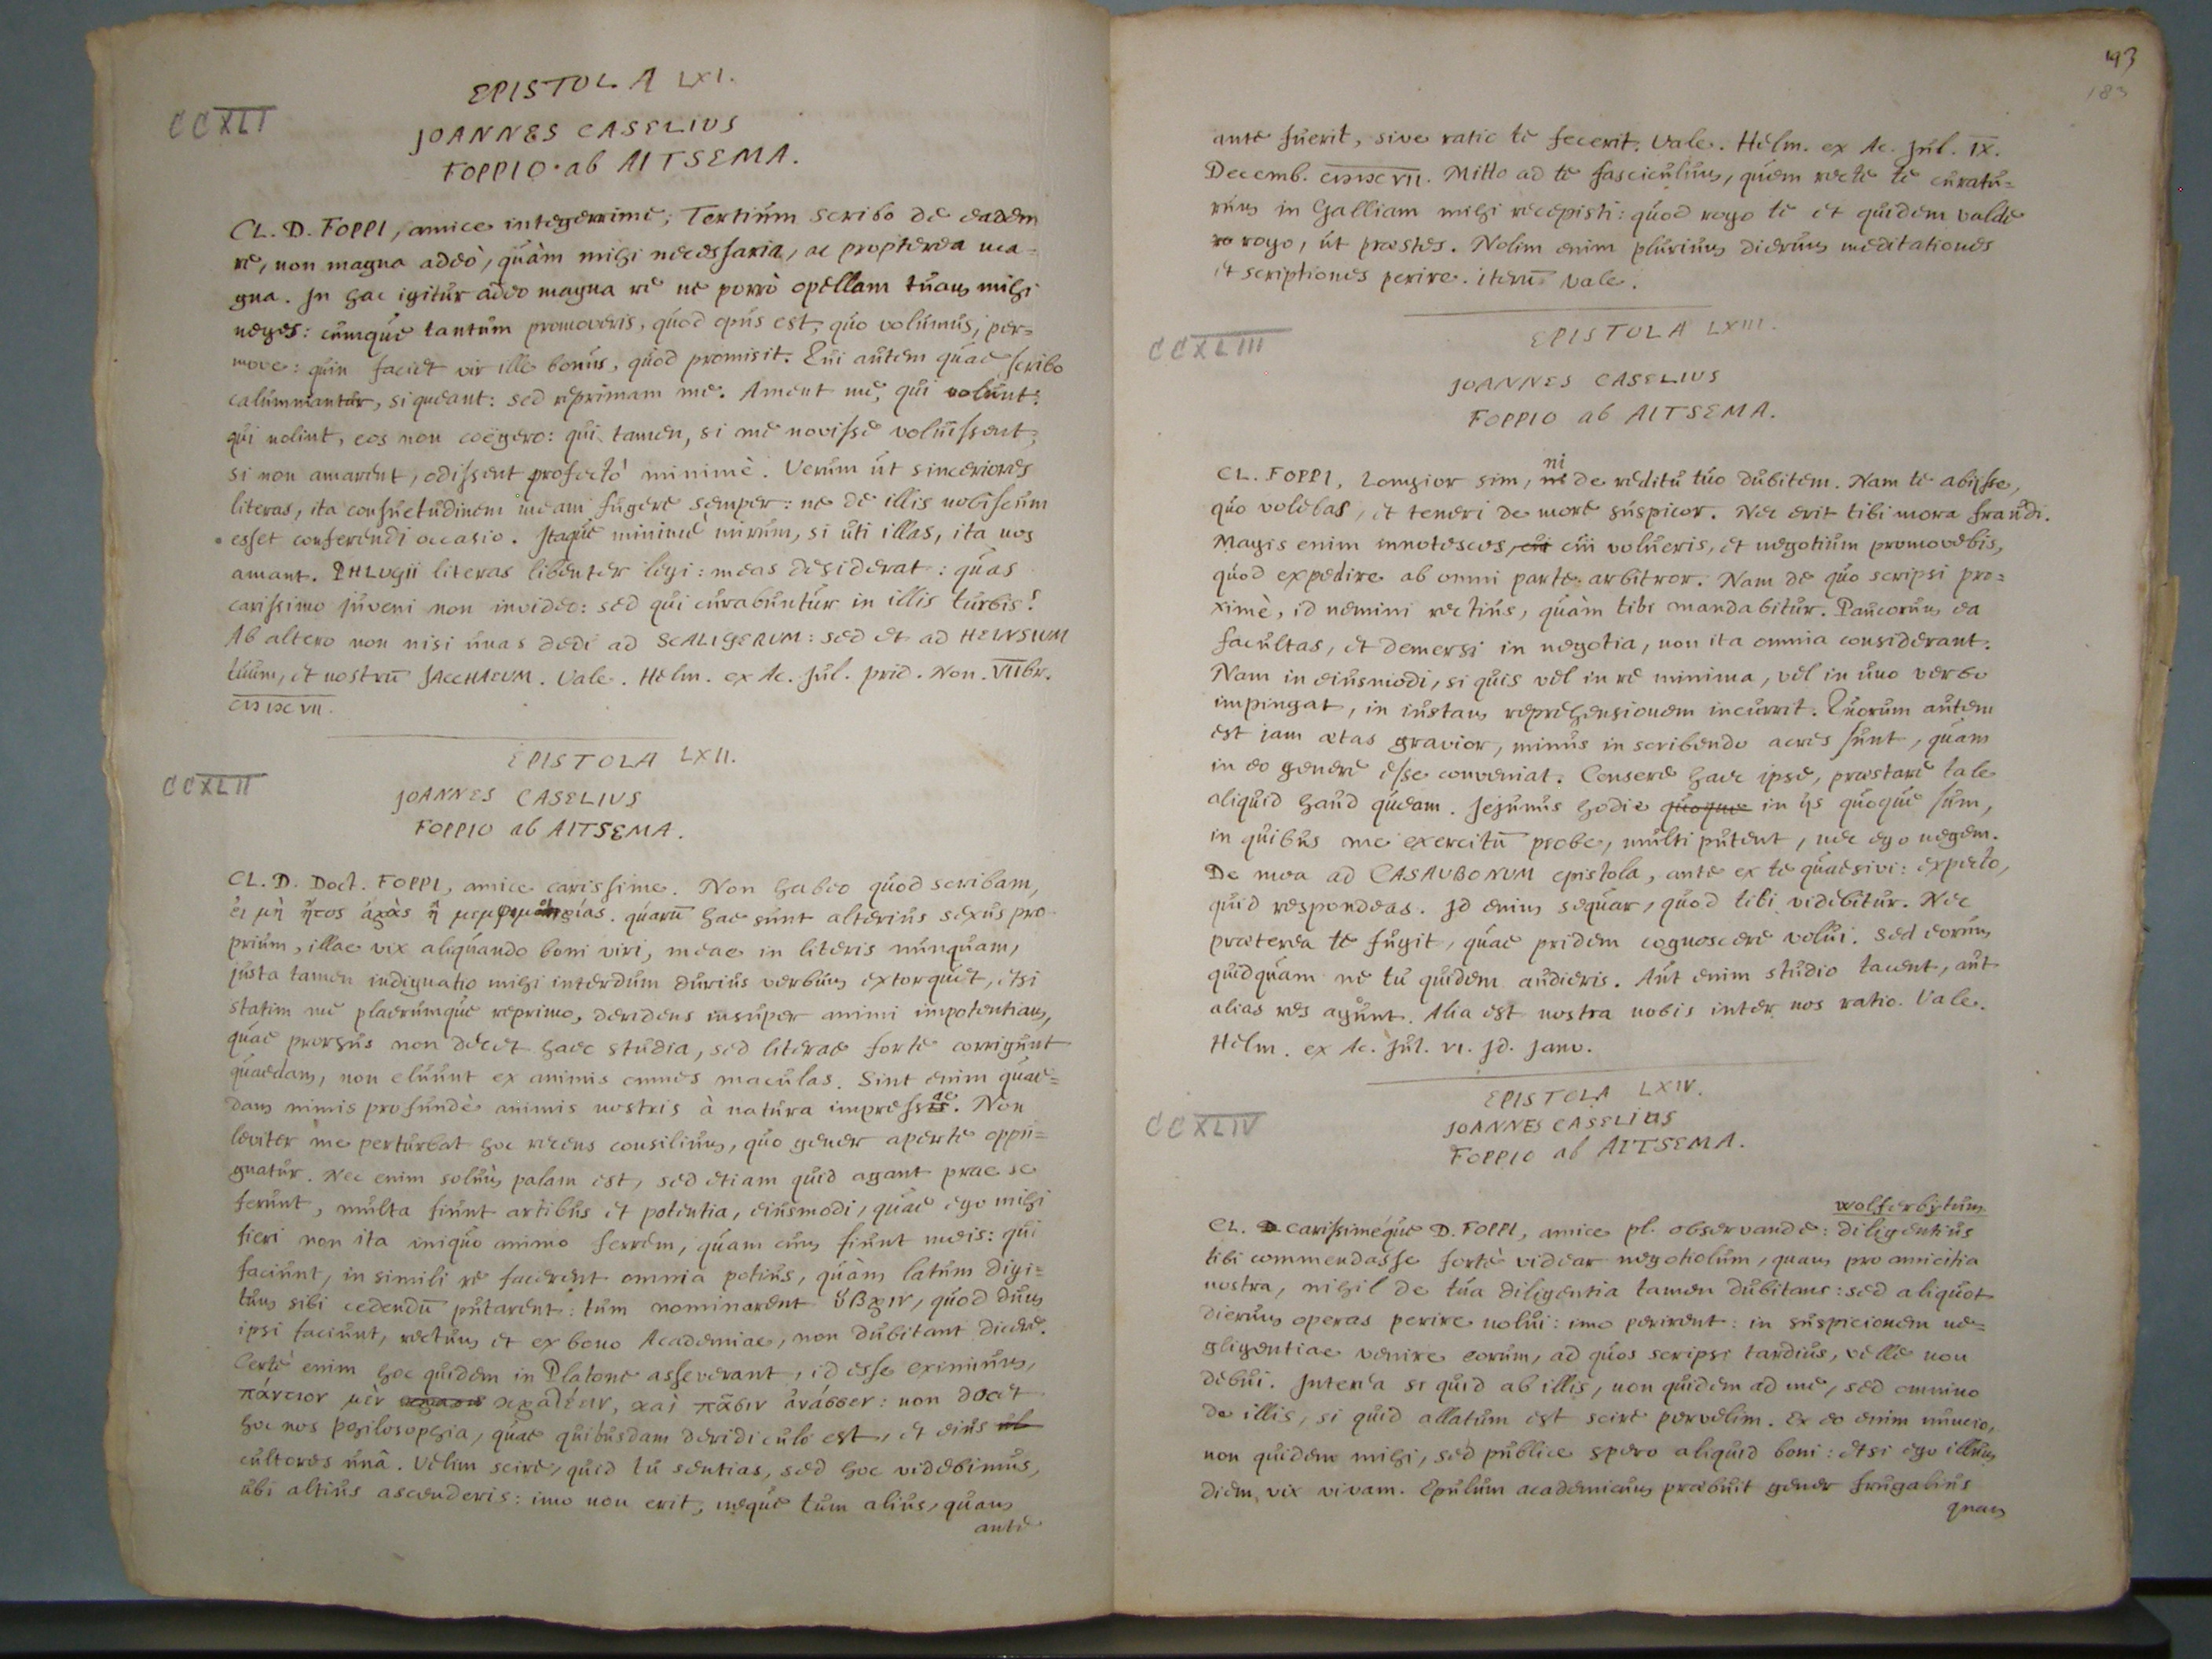 EPISTOLA LXI.
CCXLI
JOANNES CASELIUS
FOPPIO ab AITSEMA.
CL. D. FOPPI, amice integerrime; Tertiùm scribo de eadem
re, non magna adeò, quàm mihi necessaria, ac propterea ma-
gna. In hac igitur adeo magna re ne porrò opellam tuam mihi
neges: cumque tantum promoveris, quod opus est, quo volumus, per-
move: quin faciet vir ille bonus, quod promisit. Qui autem quae scribo
calumniantur, si queant: sed reprimam me. Ament me, qui volunt:
qui nolint, eos non coëgero: qui tamen, si me novisse voluissent,
si non amarent, odissent profectò minimè. Verùm ut sinceriores
literas, ita consuetudinem meam fugere semper: ne de illis nobiscum
esset conferendi occasio. Itaque minimè mirum, si uti illas, ita nos
amant. PHLUGII literas libenter legi: meas desiderat: quas
carissimo juveni non invideo: sed qui curabuntur in illis turbis!
Ab altero non nisi unas dedi ad SCALIGERUM: sed et ad HEINSIUM
tuum, et nostrū JACCHAEUM. Vale. Helm. ex Ac. Jul. prid. Non. VIIbr.
CIƆIƆCVII.
EPISTOLA LXII.
CCXLII
JOANNES CASELIUS
FOPPIO ab AITSEMA.
CL. D. Doct. FOPPI, amice carissime. Non habeo quod scribam,
εἰ μὴ ἤτοι ἀρὰς ἢ quarū hae sunt alterius sexus pro-
prium, illae vix aliquando boni viri, meae in literis nunquam,
justa tamen indignatio mihi interdum durius verbum extorquet, etsi
statim me plaerumque reprimo, deridens insuper animi impotentiam,
quae prorsus non decet haec studia, sed literae forte corrigunt
quaedam, non eluunt ex animis omnes maculas. Sint enim quae-
dam nimis profundè animis nostris à natura impressae. Non
leviter me perturbat hoc recens consilium, quo gener aperte oppu-
gnatur. Nec enim solum palam est, sed etiam quid agant prae se
ferunt, multa fiunt artibus et potentia, eiusmodi, quae ego mihi
fieri non ita iniquo animo ferrem, quam cum fiunt meis: qui
faciunt, in simili re facerent omnia potius, quàm latum digi-
tum sibi cedendū putarent: tum nominarent ὕβριν, quod dum
ipsi faciunt, rectum et ex bono Academiae, non dubitant dicere.
Certè enim hoc quidem in Platone asseverant, id esse eximium,
πάντων μὲν κρατέειν, καὶ πᾶσιν ἀνάσσειν: non docet
hoc nos philosophia, quae quibusdam deridiculo est, et eius ul
cultores unâ. Velim scire, quid tu sentias, sed hoc videbimus,
ubi altius ascenderis: imo non erit, neque tum alius, quam
ante
193
183
ante fuerit, sive ratio te fecerit. Vale. Helm. ex Ac. Jul. IX.
Decemb. CIƆIƆCVII. Mitto ad te fasciculum, quem recte te curatu-
rum in Galliam mihi recepisti: quod rogo te et quidem valde
ro rogo, ut praestes. Nolim enim plurium dierum meditationes
et scriptiones perire. iterū vale.
EPISTOLA LXIII.
CCXLIII
JOANNES CASELIUS
FOPPIO ab AITSEMA.
CL. FOPPI, Longior sim, ni de reditu tuo dubitem. Nam te abijsse,
quo volebas, et teneri de more suspicor. Nec erit tibi mora fraudi.
Magis enim innotesces, cui cui volueris, et negotium promovebis,
quod expedire ab omni parte arbitror. Nam de quo scripsi pro-
ximè, id nemini rectius, quàm tibi mandabitur. Paucorum ea
facultas, et demersi in negotia, non ita omnia considerant.
Nam in eiusmodi, si quis vel in re minima, vel in uno verbo
impingat, in iustam reprehensionem incurrit. Quorum autem
est jam aetas gravior, minus in scribendo acres sunt, quam
in eo genere esse conveniat. Censere haec ipse, praestare tale
aliquid haud queam. Jejunus hodie quoque in ijs quoque sum,
in quibus me exercitū probe, multi putent, nec ego negem.
De mea ad CASAUBONUM epistola, ante ex te quaesivi: expecto,
quid respondeas. Id enim sequar, quod tibi videbitur. Nec
praeterea te fugit, quae pridem cognoscere volui. Sed eorum
quidquam ne tu quidem audieris. Aut enim studio tacent, aut
alias res agunt. Alia est nostra nobis inter nos ratio. Vale.
Helm. ex Ac. Jul. VI. Id. Janv.
EPISTOLA LXIV.
CCXLIV
JOANNES CASELIUS
FOPPIO ab AITSEMA.
Wolferbytum
CL. D carissimeque D. FOPPI, amice pl. observande: diligentius
tibi commendasse fortè videar negotiolum, quam pro amicitia
nostra, nihil de tua diligentia tamen dubitans: sed aliquot
dierum operas perire nolui: imo perirent: in suspicionem ne-
gligentiae venire eorum, ad quos scripsi tardius, velle non
debui. Interea si quid ab illis, non quidem ad me, sed omnino
de illis, si quid allatum est scire pervelim. Ex eo enim nuncio,
non quidem mihi, sed publice spero aliquid boni: etsi ego illum
diem vix vivam. Epulum academicum praebuit gener frugalius
quam